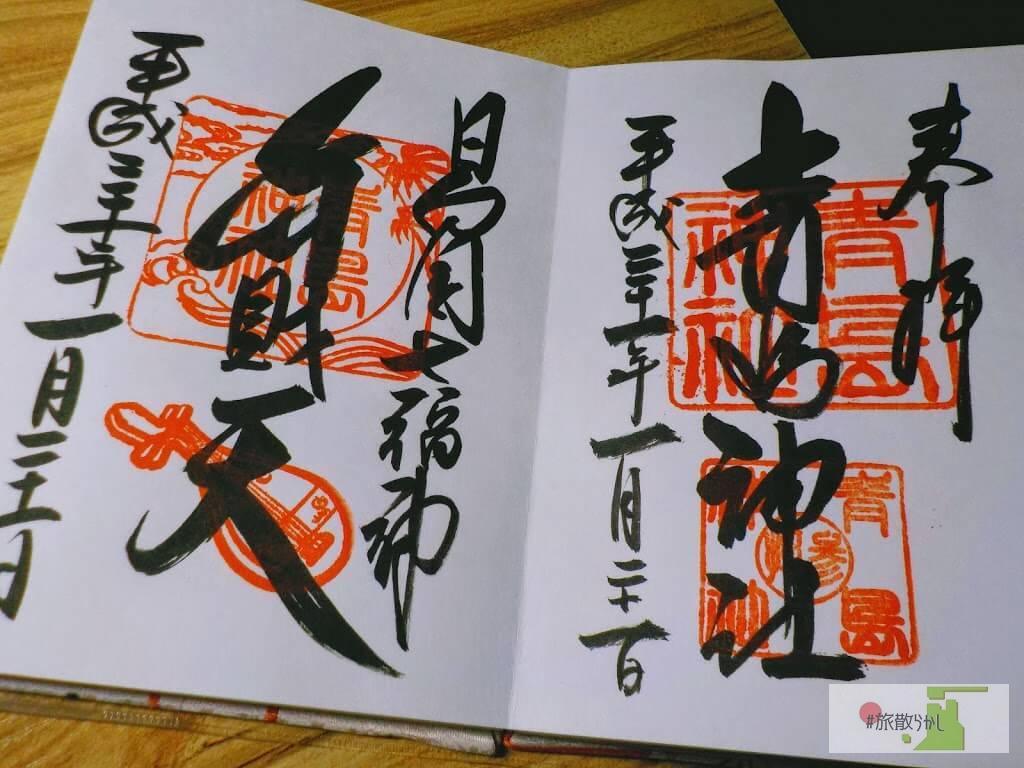 奉拝
青島神社
平成三十一年一月二十日
青島
神社
青島
神社
日向国七福神
弁財天
平成三十一年一月二十日
青島
神社
#旅散らかし